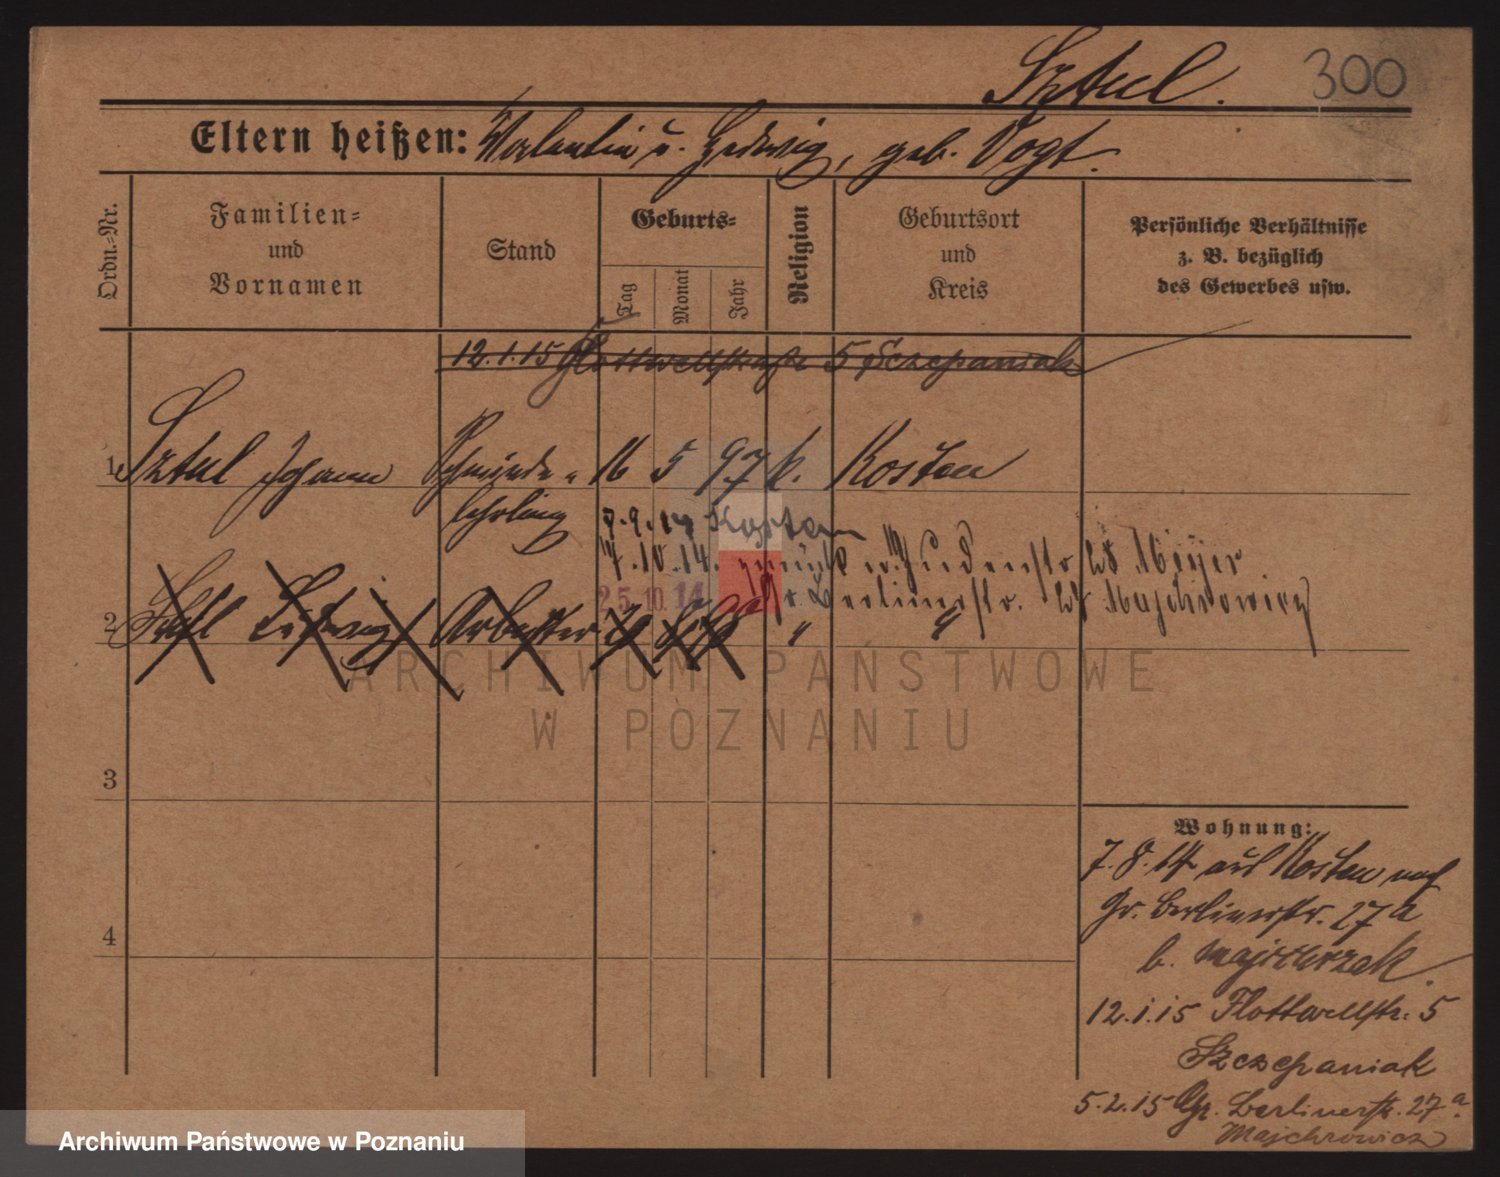 Sztul.
300
Eltern heißen: Valentin u. Hedwig, geb. Vogt.
Ordn.=Nr.
Familien=
und
Vornamen
Stand
Geburts=
Tag
Monat
Jahr
Religion
Geburtsort
und
Kreis
Persönliche Verhältnisse
z. B. bezüglich
des Gewerbes usw.
12.1.15 Flottwellstraße 5 Szczepaniak
1 Sztul Johann Schmiede- 16 5 97 k. Kosten
lehrling
7.9.14 Kosten
17.10.14. zurück 28 Meyer
25.10.14 Gr. Berlinerstr. 27 Majchrowicz
2 Ludwig Arbeiter " "
ARCHIWUM PAŃSTWOWE
W POZNANIU
3
4
Wohnung:
7.8.14 aus Kosten nach
Gr. Berlinerstr. 27a
b. Majcherzak.
12.1.15 Flottwellstr. 5
Szczepaniak
5.2.15 Gr. Berlinerstr. 27a.
Majchrowicz
Archiwum Państwowe w Poznaniu